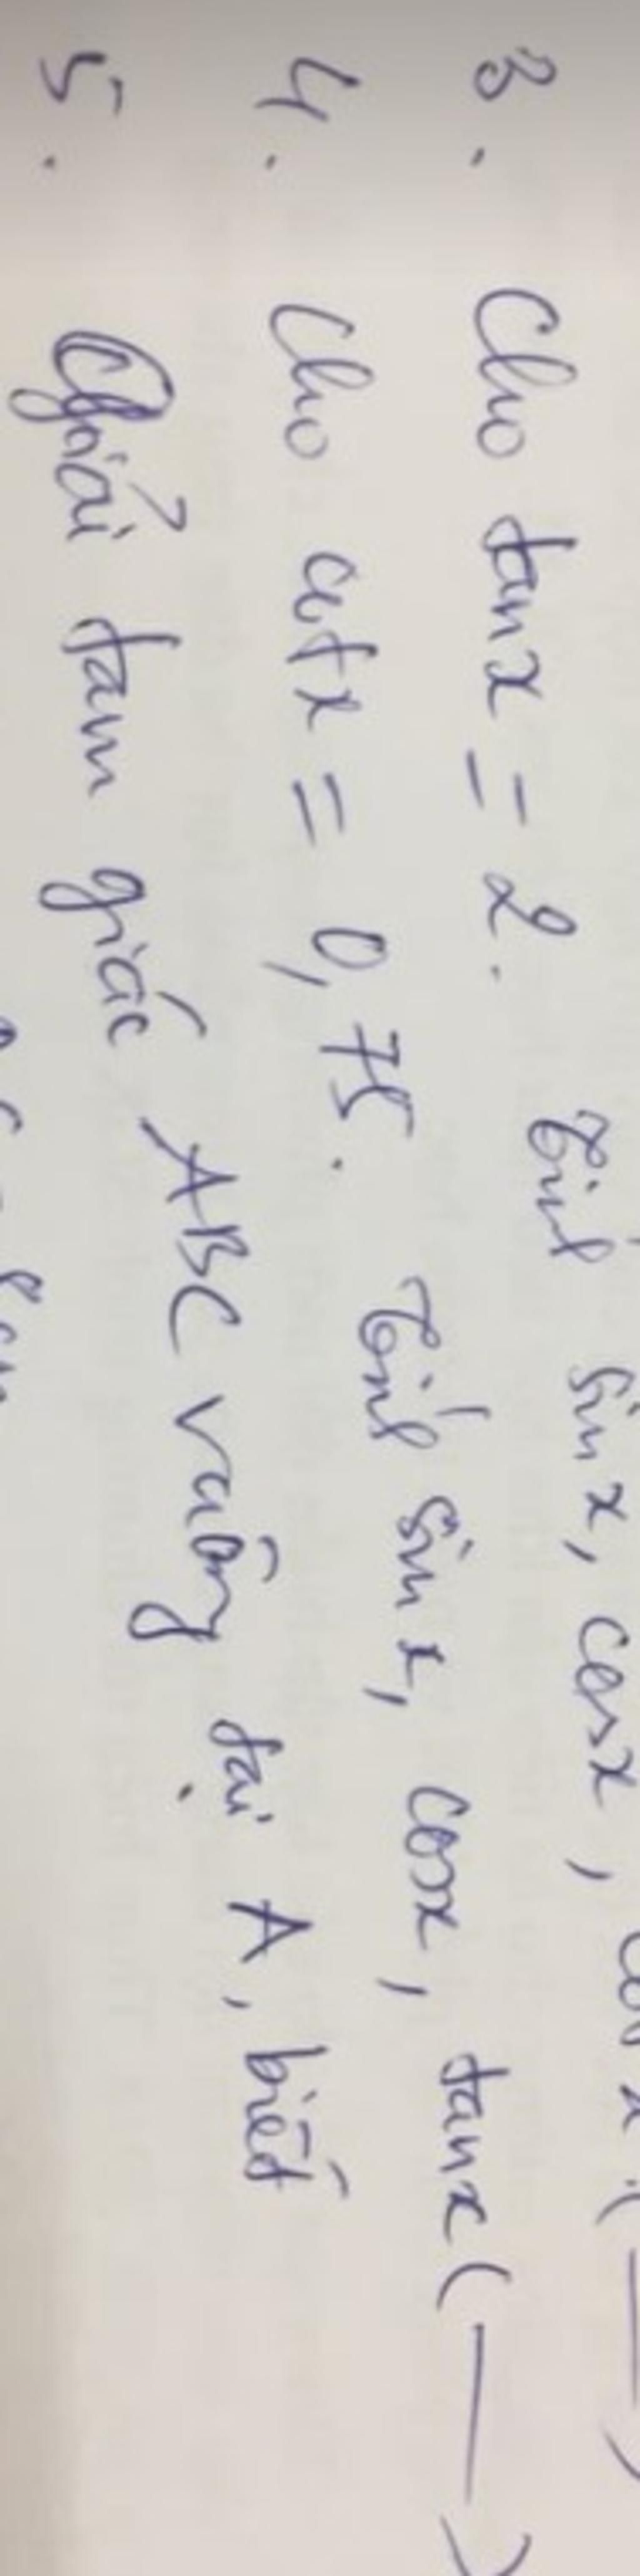 3. Cho tanx = 2. Tính sin x, cosx, cot x (
4. Cho cotx = 0,75. Tính sin x, cosx, tanx (
5. Giải tam giác ABC vuông tại A, biết